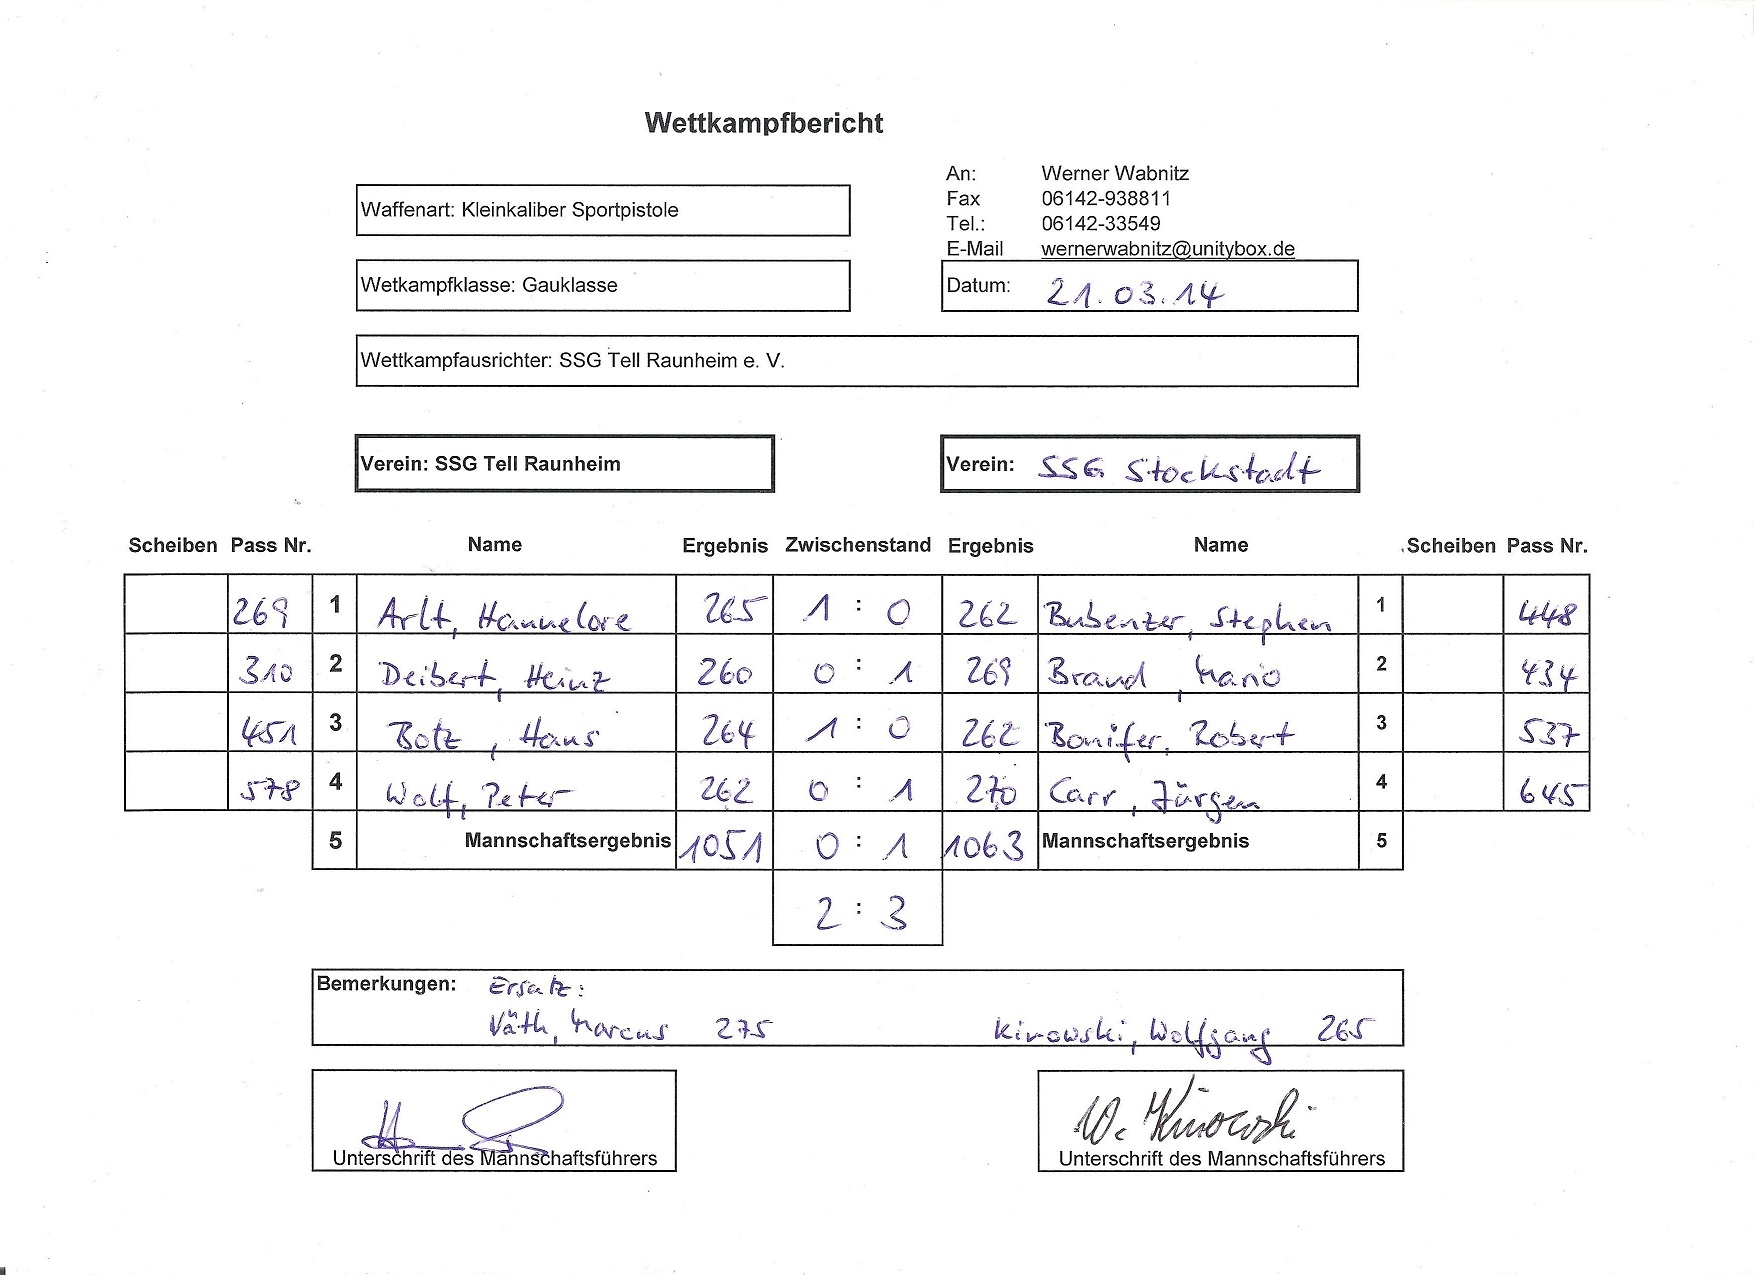 Wettkampfbericht
An: Werner Wabnitz
Waffenart: Kleinkaliber Sportpistole
Fax 06142-938811
Tel.: 06142-33549
E-Mail wernerwabnitz@unitybox.de
Wetkampfklasse: Gauklasse
Datum: 21.03.14
Wettkampfausrichter: SSG Tell Raunheim e. V.
Verein: SSG Tell Raunheim
Verein: SSG Stockstadt
Scheiben Pass Nr. Name Ergebnis Zwischenstand Ergebnis Name Scheiben Pass Nr.
269 1 Arlt, Hannelore 265 1 : 0 262 Bubenzer, Stephen 1 448
310 2 Deibert, Heinz 260 0 : 1 269 Brand, Mario 2 434
451 3 Botz, Hans 264 1 : 0 262 Bonifer, Robert 3 537
578 4 Wolf, Peter 262 0 : 1 270 Carr, Jürgen 4 645
5 Mannschaftsergebnis 1051 0 : 1 1063 Mannschaftsergebnis 5
2 : 3
Bemerkungen: Ersatz:
Väth, Marcus 275 Kirowski, Wolfgang 265
W. Kirowski
Unterschrift des Mannschaftsführers
Unterschrift des Mannschaftsführers